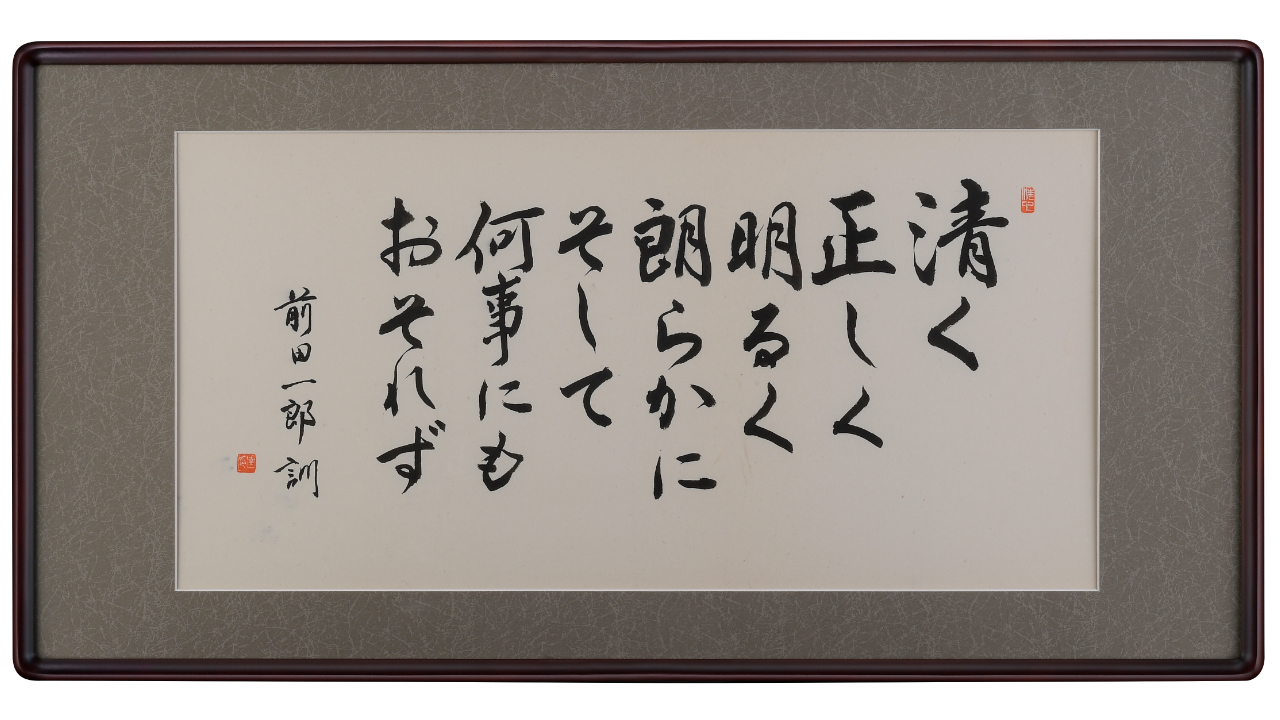 清く
正しく
明るく
朗らかに
そして
何事にも
おそれず
前田一郎訓